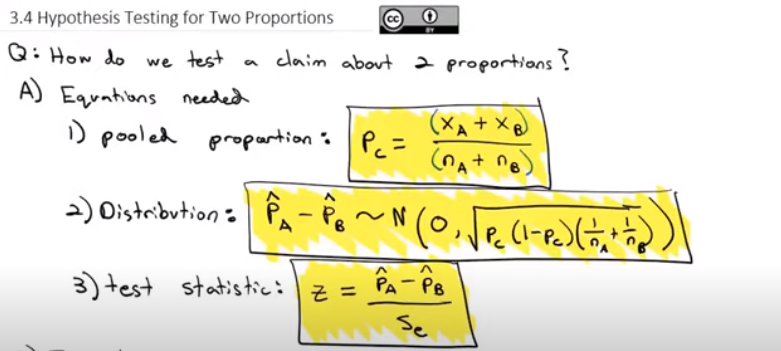 3.4 Hypothesis Testing for Two Proportions
cc BY
Q: How do we test a claim about 2 proportions?
A) Equations needed
1) pooled proportion: Pc = (xA + xB) / (nA + nB)
2) Distribution: p̂A - p̂B ~ N(0, √(Pc(1-Pc)(1/nA + 1/nB)))
3) test statistic: z = (p̂A - p̂B) / Se